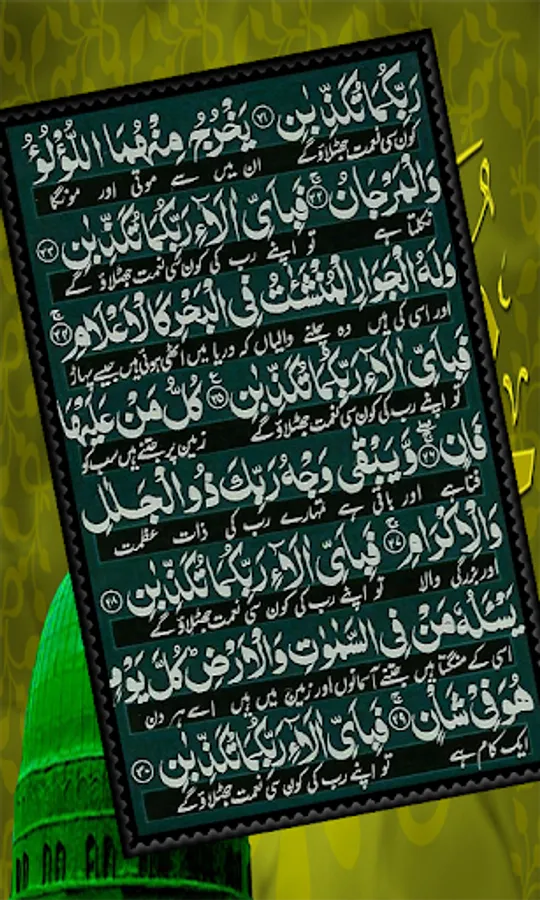 رَبِّكُمَا تُكَذِّبٰنِ ﴿۲۱﴾ يَخْرُجُ مِنْهُمَا اللُّؤْلُؤُ
کون سی نعمت جھٹلاؤ گے ان میں سے موتی اور مونگا
وَالْمَرْجَانُ ﴿۲۲﴾ فَبِاَيِّ اٰلَآءِ رَبِّكُمَا تُكَذِّبٰنِ ﴿۲۳﴾
نکلتا ہے تو اپنے رب کی کون سی نعمت جھٹلاؤ گے
وَلَهُ الْجَوَارِ الْمُنْشَئٰتُ فِي الْبَحْرِ كَالْاَعْلَامِ ﴿۲۴﴾
اور اسی کی ہیں وہ چلنے والیاں کہ دریا میں اٹھی ہوئی ہیں جیسے پہاڑ
فَبِاَيِّ اٰلَآءِ رَبِّكُمَا تُكَذِّبٰنِ ﴿۲۵﴾ كُلُّ مَنْ عَلَيْهَا
تو اپنے رب کی کون سی نعمت جھٹلاؤ گے زمین پر جتنے ہیں سب کو
فَانٍ ﴿۲۶﴾ وَّيَبْقٰى وَجْهُ رَبِّكَ ذُو الْجَلٰلِ
فنا ہے اور باقی ہے تمہارے رب کی ذات عظمت
وَالْاِكْرَامِ ﴿۲۷﴾ فَبِاَيِّ اٰلَآءِ رَبِّكُمَا تُكَذِّبٰنِ ﴿۲۸﴾
اور بزرگی والا تو اپنے رب کی کون سی نعمت جھٹلاؤ گے
يَسْـَٔلُهٗ مَنْ فِي السَّمٰوٰتِ وَالْاَرْضِ كُلَّ يَوْمٍ
اسی کے منگتا ہیں جتنے آسمانوں اور زمین میں ہیں اسے ہر دن
هُوَ فِيْ شَاْنٍ ﴿۲۹﴾ فَبِاَيِّ اٰلَآءِ رَبِّكُمَا تُكَذِّبٰنِ ﴿۳۰﴾
ایک کام ہے تو اپنے رب کی کون سی نعمت جھٹلاؤ گے